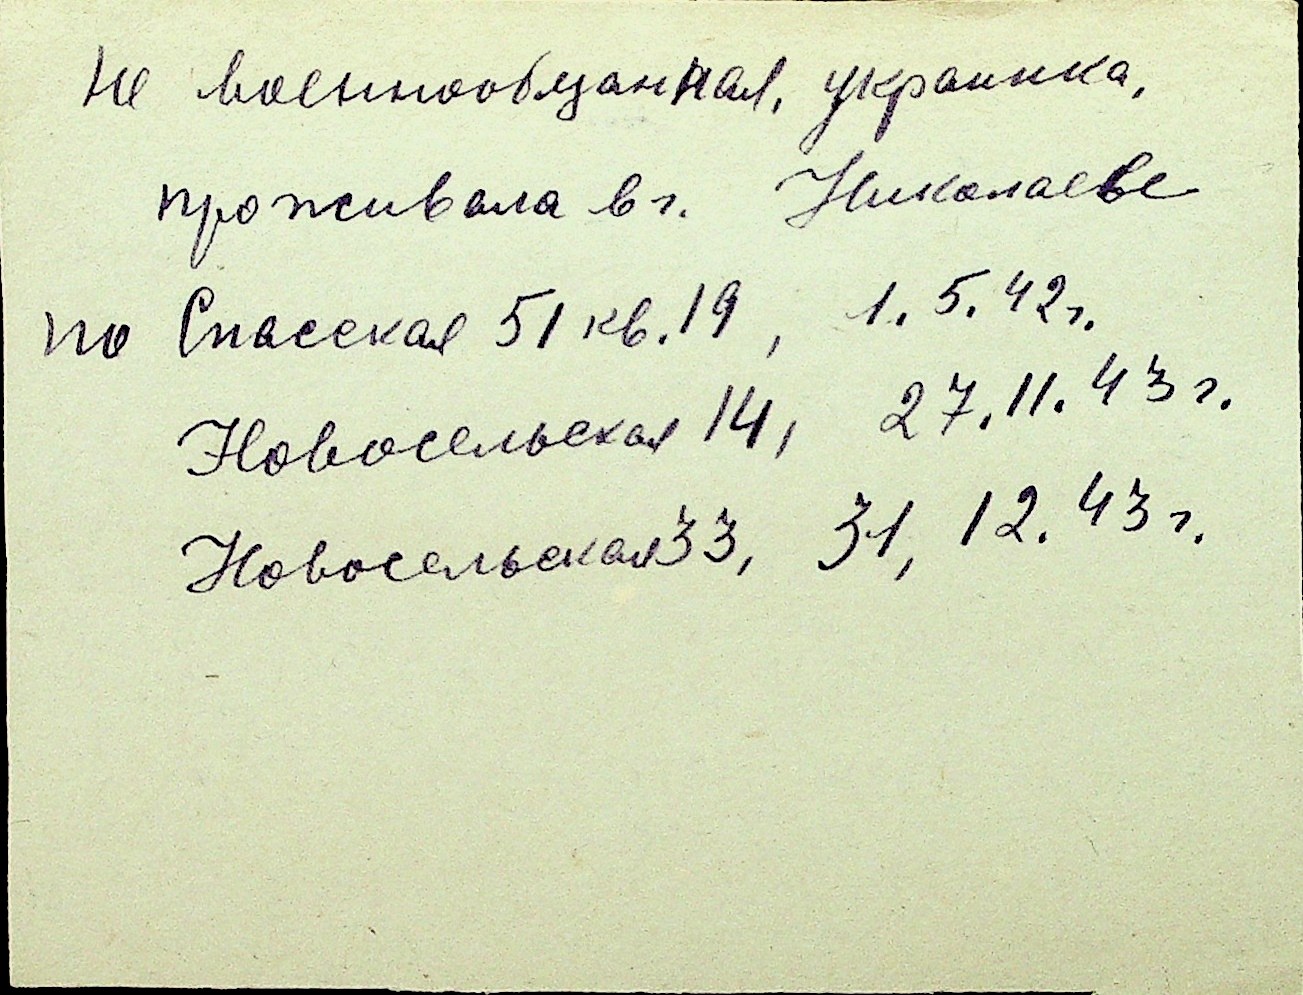 не военнообязанная, украинка,
проживала в г. Николаеве
по Спасская 51 кв. 19, 1. 5. 42 г.
Новосельская 14, 27. 11. 43 г.
Новосельская 33, 31, 12. 43 г.